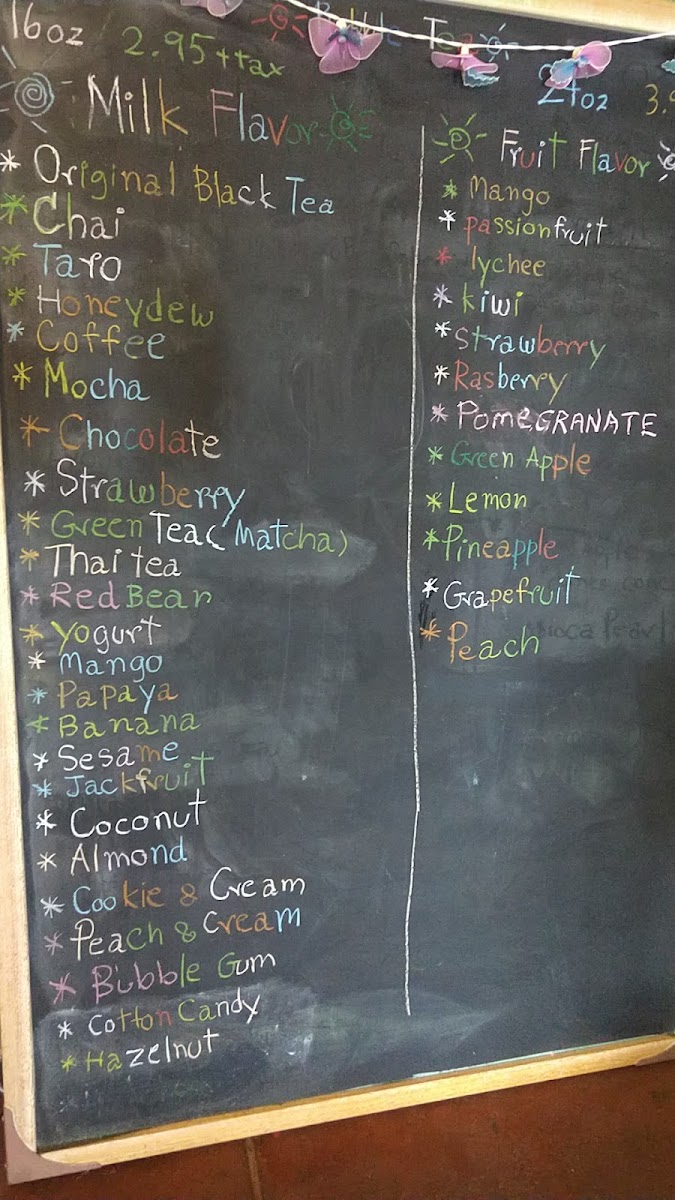 16oz 2.95 + tax
Bubble Tea
24oz
Milk Flavor
* Original Black Tea
* Chai
* Taro
* Honeydew
* Coffee
* Mocha
* Chocolate
* Strawberry
* Green Tea (Matcha)
* Thai tea
* Red Bean
* Yogurt
* Mango
* Papaya
* Banana
* Sesame
* Jackfruit
* Coconut
* Almond
* Cookie & Cream
* Peach & Cream
* Bubble Gum
* Cotton Candy
* Hazelnut
Fruit Flavor
* Mango
* passionfruit
* lychee
* kiwi
* Strawberry
* Rasberry
* POMEGRANATE
* Green Apple
* Lemon
* Pineapple
* Grapefruit
* Peach